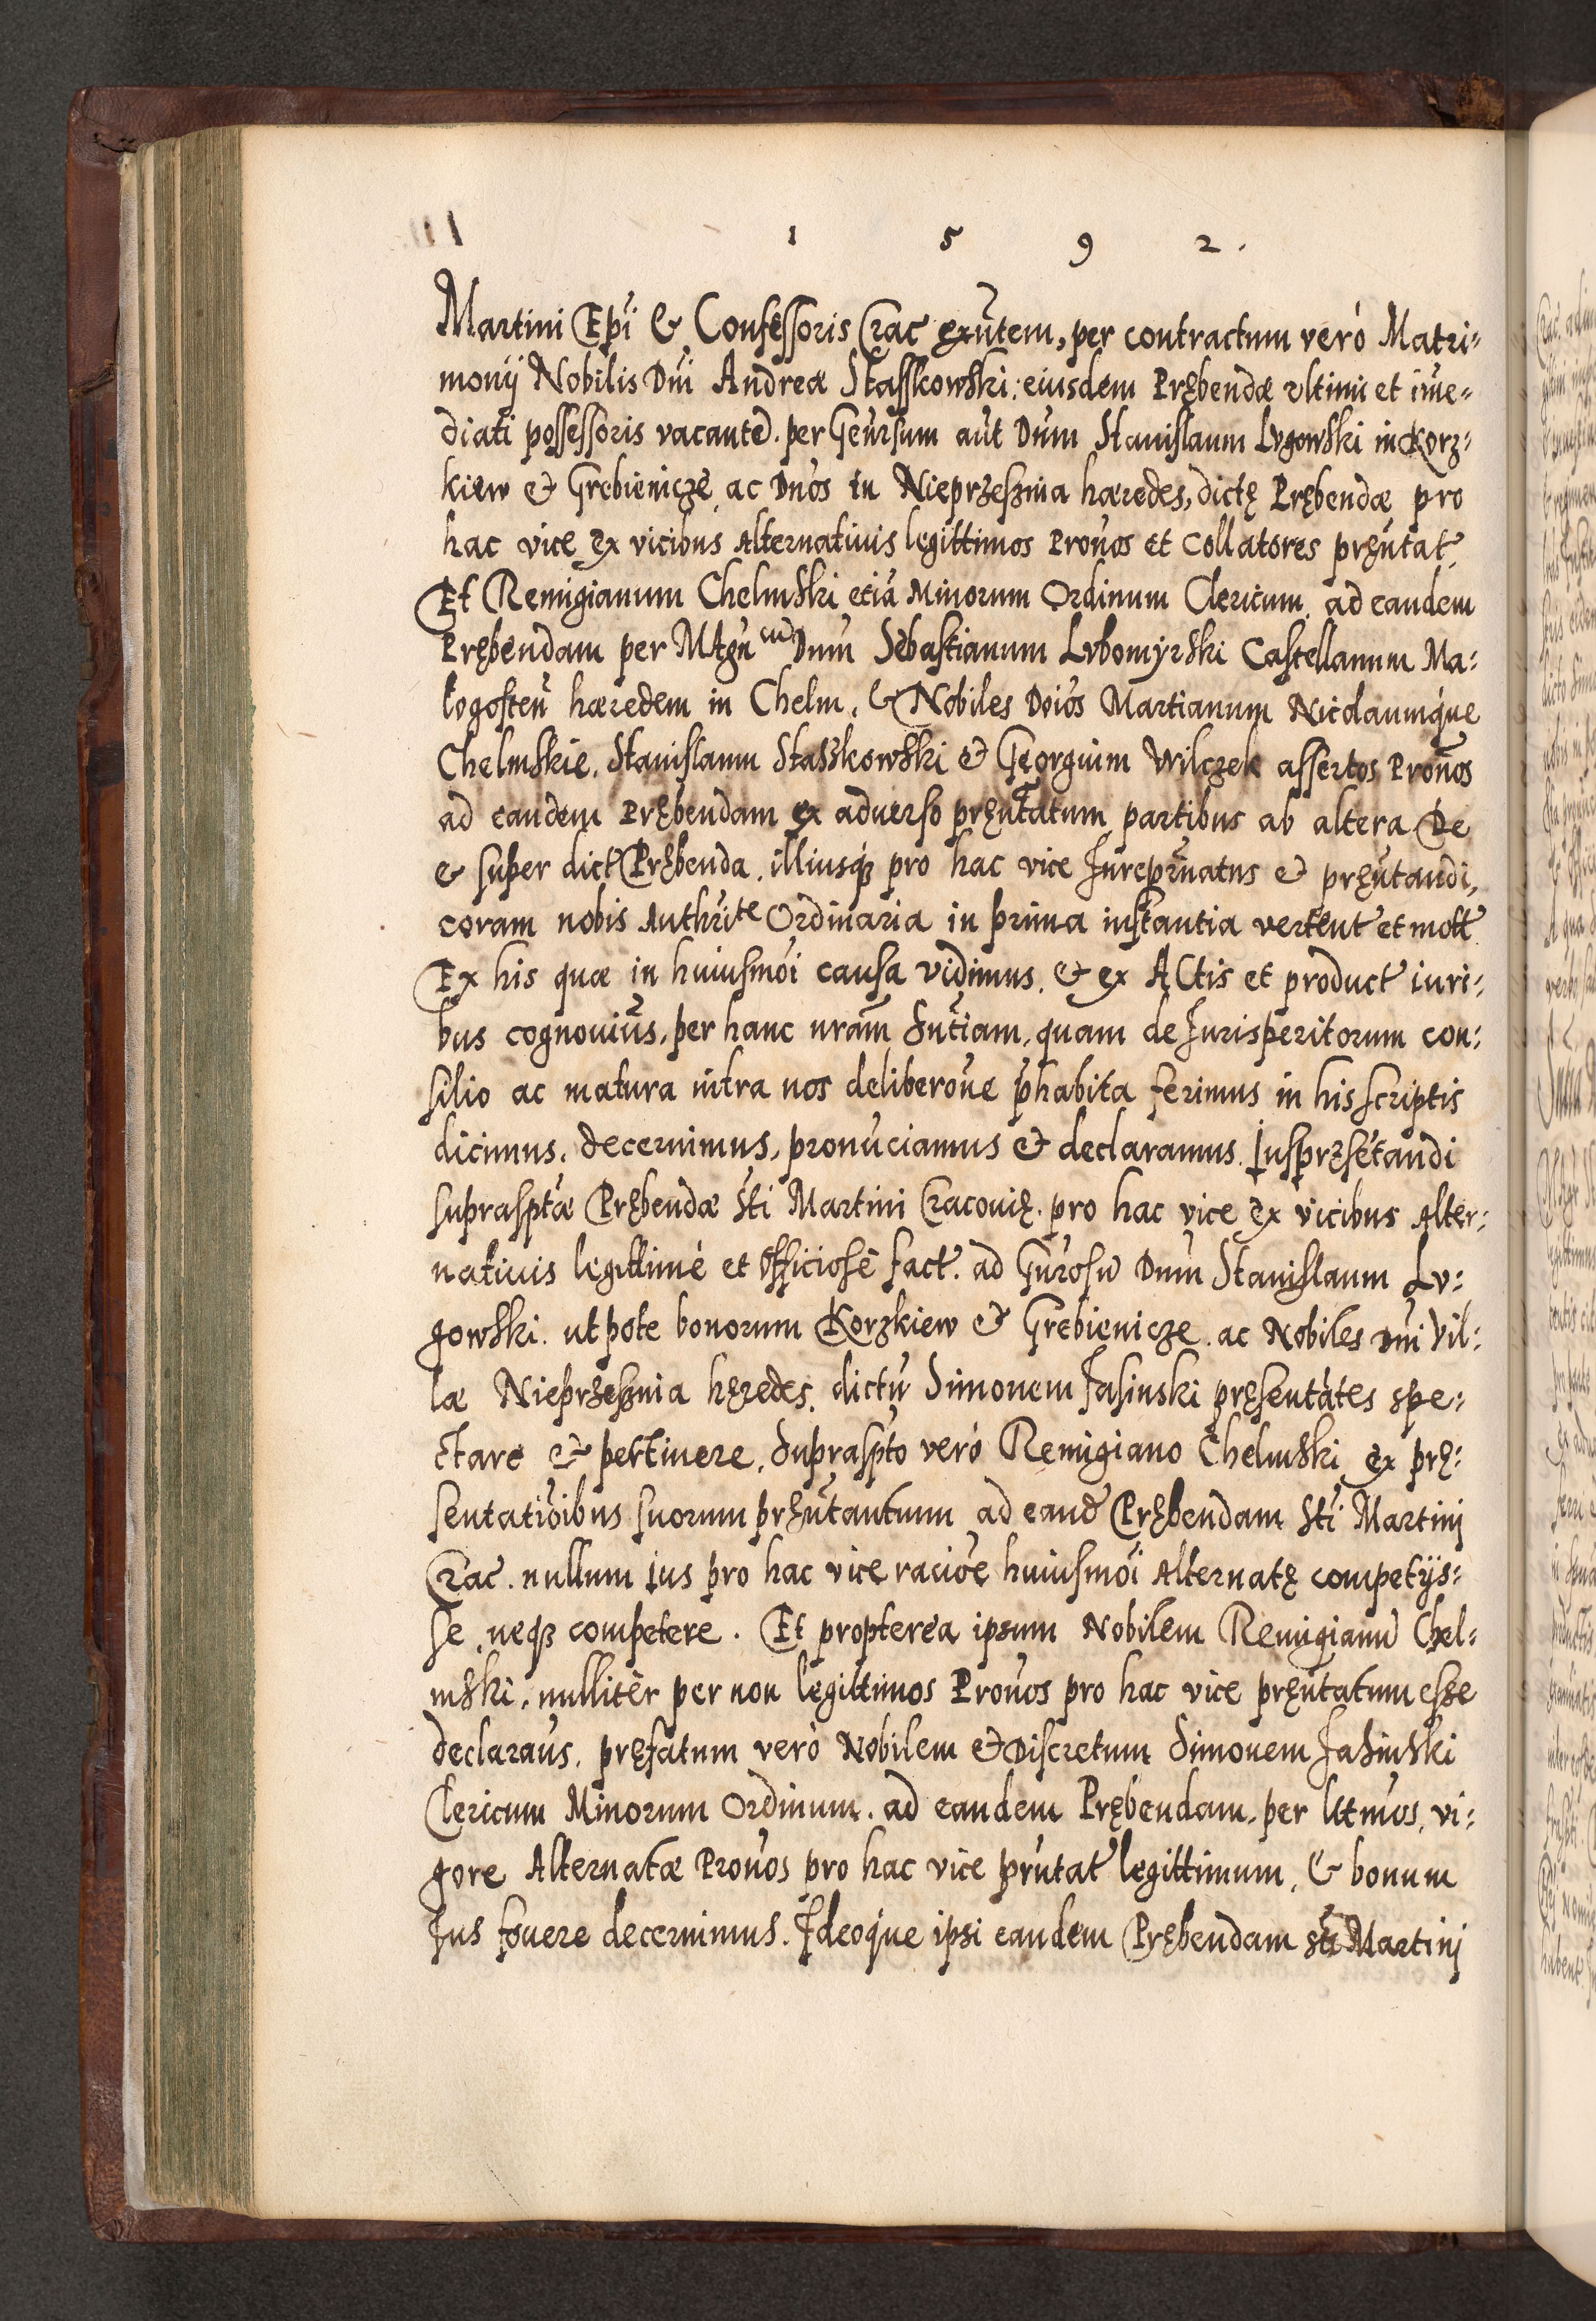 1 5 9 2.
Martini Epī & Confessoris Crac̄ exn̄tem, per contractum verò Matri=
monÿ Nobilis Dn̄i Andreæ Stasskowski: eiusdem Prębendæ vltimi et im̄e=
diati possessoris vacanteɔ. per Gen̄rsum aūt Dn̄um Stanislaum Lvgowski in Korz=
kiew & Grebienicze, ac Dn̄os in Nieprzesznia hæredes, dictę Prębendæ pro
hac vice ex vicibus Alternatiuis legittimos Pron̄os et Collatores pręn̄tat
Et Remigianum Chelmski etiā Minorum Ordinum Clericum, ad eandem
Prębendam per Maḡn cūɔ Dn̄um Sebastianum Lvbomyrski Castellanum Ma=
logosten̄ hæredem in Chelm, & Nobiles Dn̄os Martianum Nicolaumq́ue
Chelmskie, Stanislaum Staszkowski & Georgium Wilczek assertos Pron̄os
ad eandem Prębendam ex aduerso pręn̄tatum partibus ab altera De
& super dict Prębenda, illiusq̄ pro hac vice Jurepr̄natus & pręn̄tandi,
coram nobis Authr̄ite Ordinaria in prima instantia vertent̄ et mott̄
Ex his quæ in huiusmōi causa vidimus, & ex Actis et product̄ iuri=
bus cognouim̄us, per hanc nrām Sn̄tiam, quam de Jurisperitorum con=
silio ac matura intra nos deliberōne p̄habita ferimus in his scriptis
dicimus, decernimus, pronūciamus & declaramus, Juspręsētandi
supraspt̄æ Prębendæ Sti Martini Cracouię, pro hac vice ex vicibus Alter=
natiuis legittimè et officiosè fact̄. ad Gn̄rosū Dn̄um Stanislaum Lv=
gowski, utpote bonorum Korzkiew & Grebienicze, ac Nobiles Dn̄i Vil=
læ Nieprzesznia hęredes, dictū Simonem Jasinski pręsentātes spe=
ctare & pertinere, Supraspt̄o verò Remigiano Chelmski, ex prę=
sentatiōibus suorum pręn̄tantum ad eand̄ Prębendam Sti Martinj
Crac. nullum Jus pro hac vice raciōe huiusmōi Alternatę competÿs=
se, neq̄ competere. Et propterea ipsum Nobilem Remigianū Chel=
mski, nullitèr per non legittimos Pron̄os pro hac vice pręn̄tatum esse
declaraūs, pręfatum verò Nobilem & Discretum Simonem Jasinski
Clericum Minorum Ordinum, ad eandem Prębendam, per ltt̄mos, vi=
gore Alternatæ Pron̄os pro hac vice prn̄tat̄ legittimum, & bonum
Jus fouere decernimus. Ideoq́ue ipsi eandem Prębendam Sti Martinj